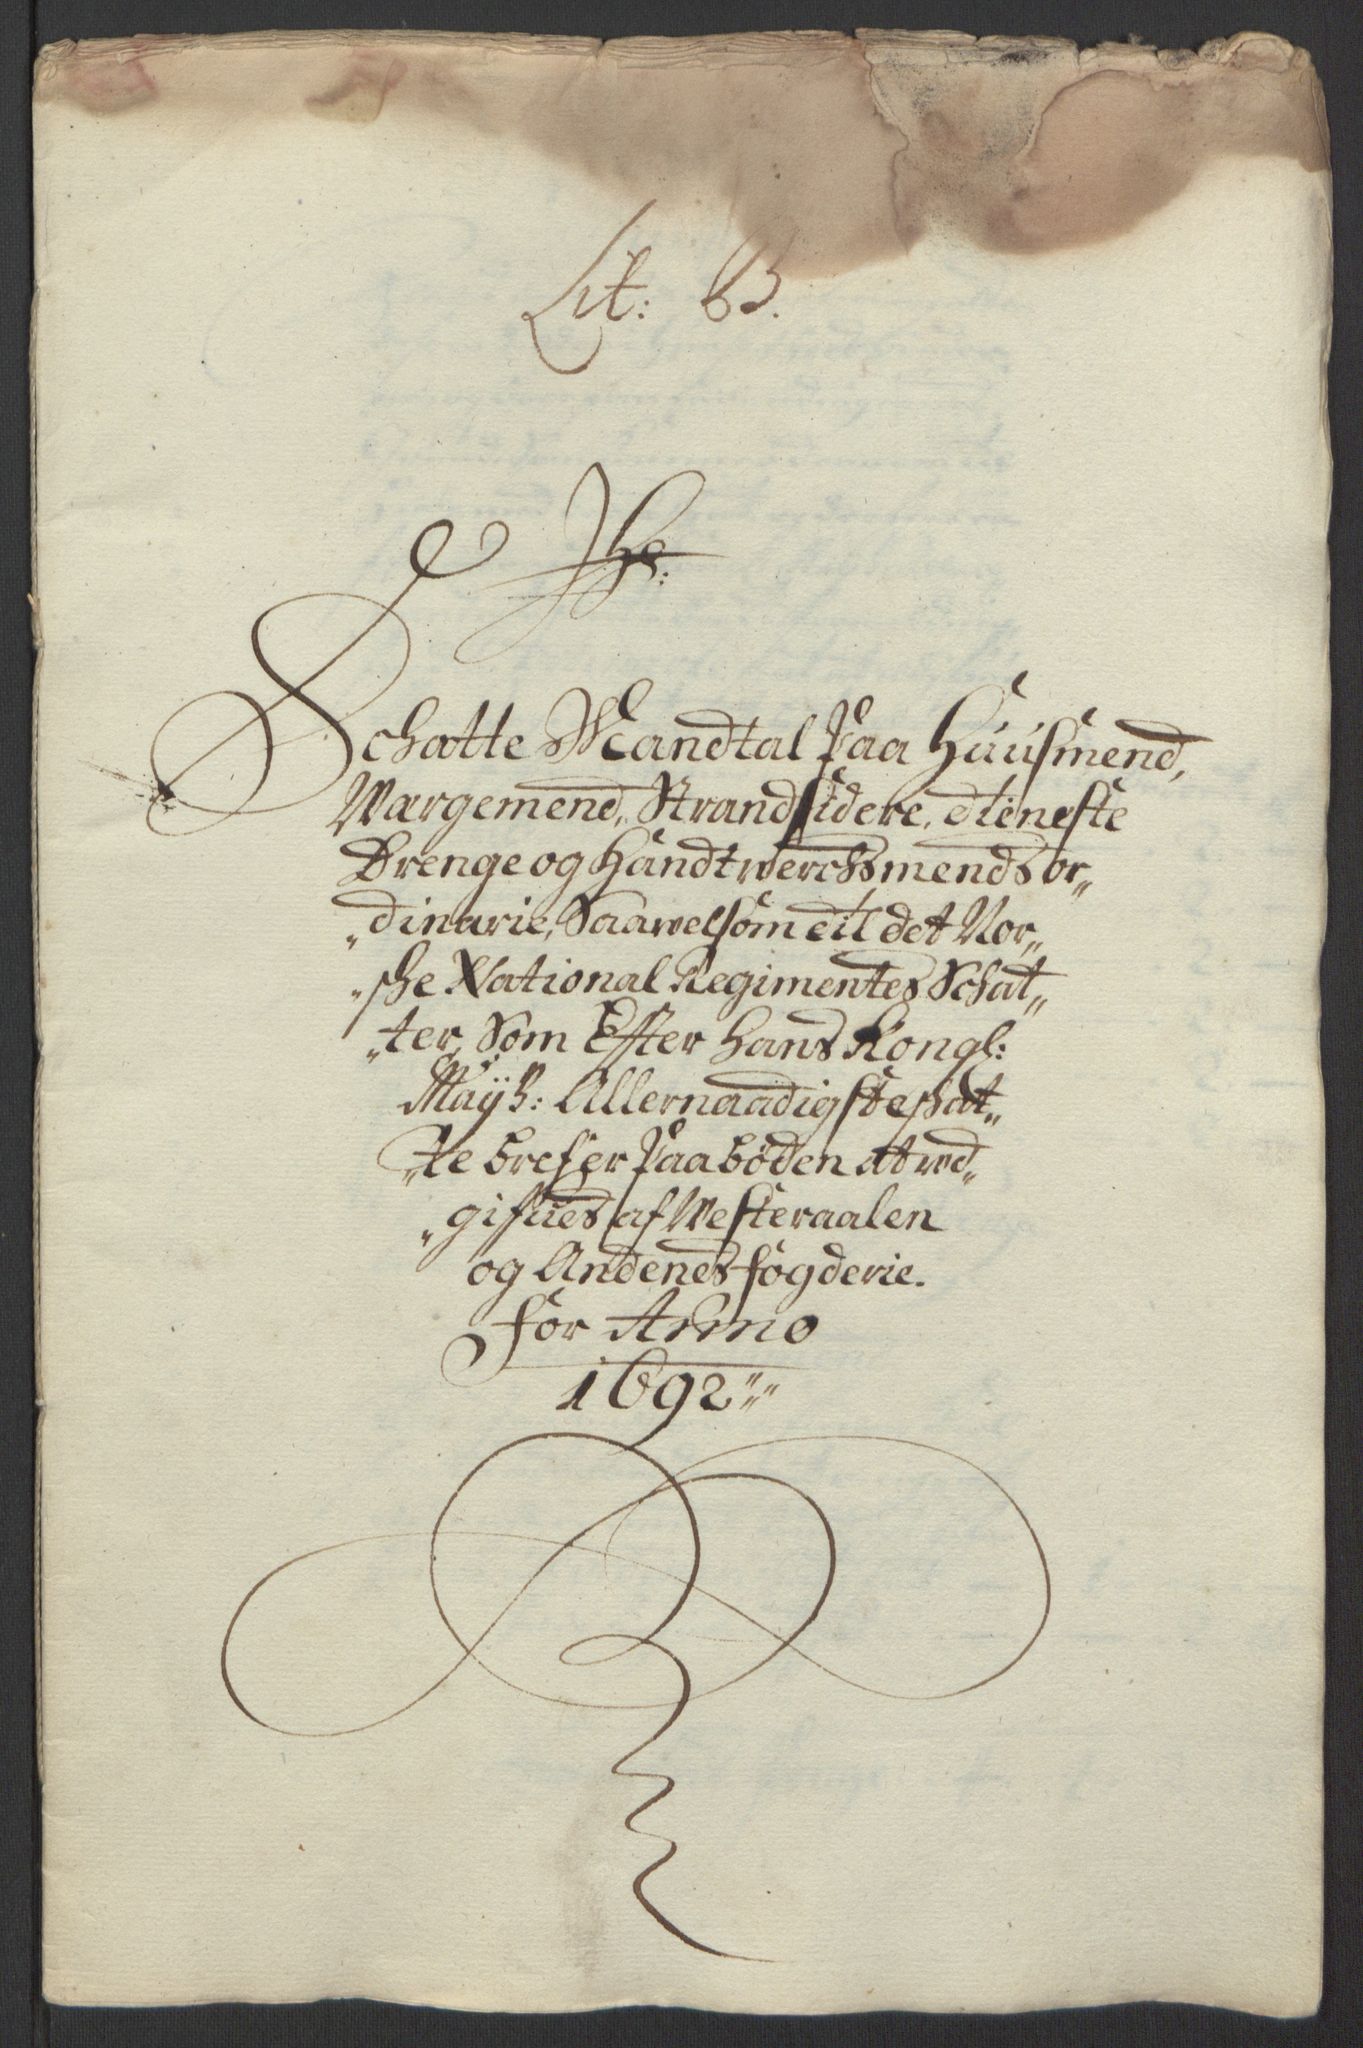 Lit: B.
Jhs:
Schatte Mandtal Paa Huusmend,
Wargemend, Strandsidere, dieneste
Drenge og Handtwerchsmends or„
„dinarie, Saawelsom til det Nor„
„sche National Regimentes Schat„
„ter, Som Efter Hans Kongl:
Mayts: Allernaadigste schat„
„te bref er Paabøden at ud„
„gifues af Westeraalen
og Andenes fogderie.
for Anno
1692